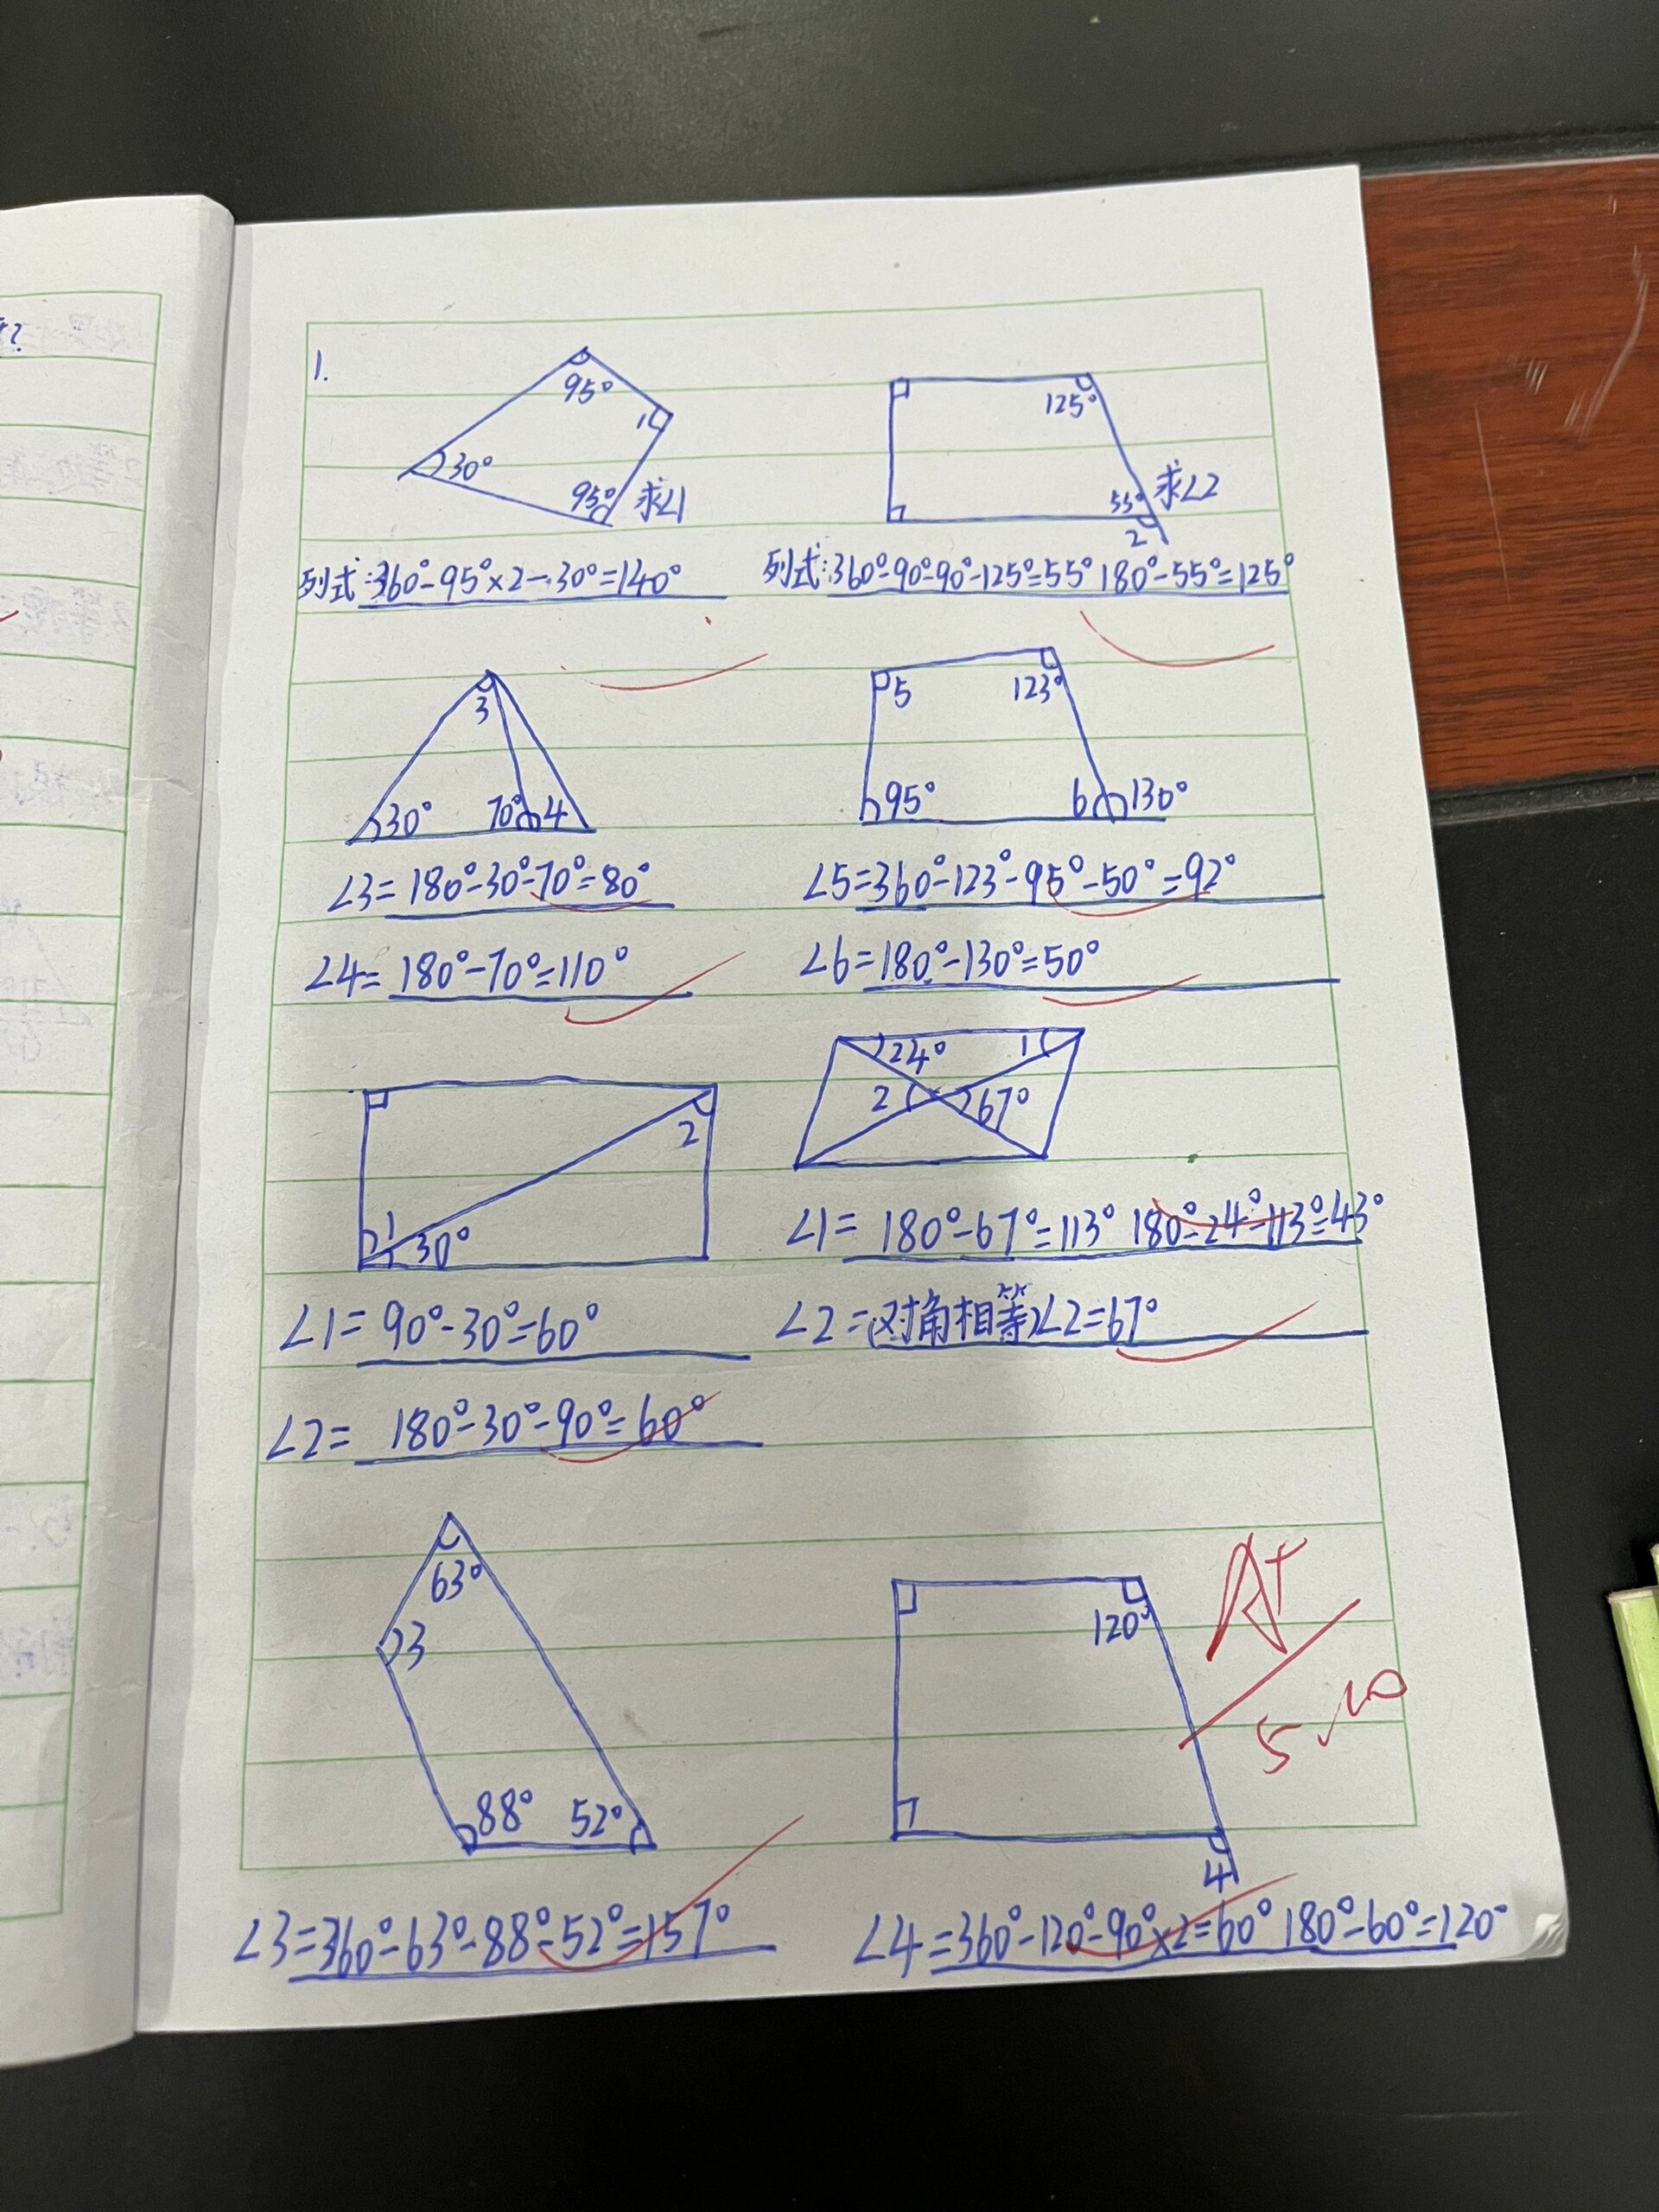 1.
95°
1
30°
95°
求∠1
125°
55°
求∠2
2
列式:360°-95°×2-30°=140°
列式:360°-90°-90°-125°=55° 180°-55°=125°
3
30°
70°
4
5
123°
95°
6
130°
∠3=180°-30°-70°=80°
∠5=360°-123°-95°-50°=92°
∠4=180°-70°=110°
∠6=180°-130°=50°
2
1
30°
24°
1
2
67°
∠1=180°-67°=113° 180°-24°-113°=43°
∠1=90°-30°=60°
∠2=(对角相等)∠2=67°
∠2=180°-30°-90°=60°
63°
3
88°
52°
120°
4
A+
5.10
∠3=360°-63°-88°-52°=157°
∠4=360°-120°-90°×2=60° 180°-60°=120°